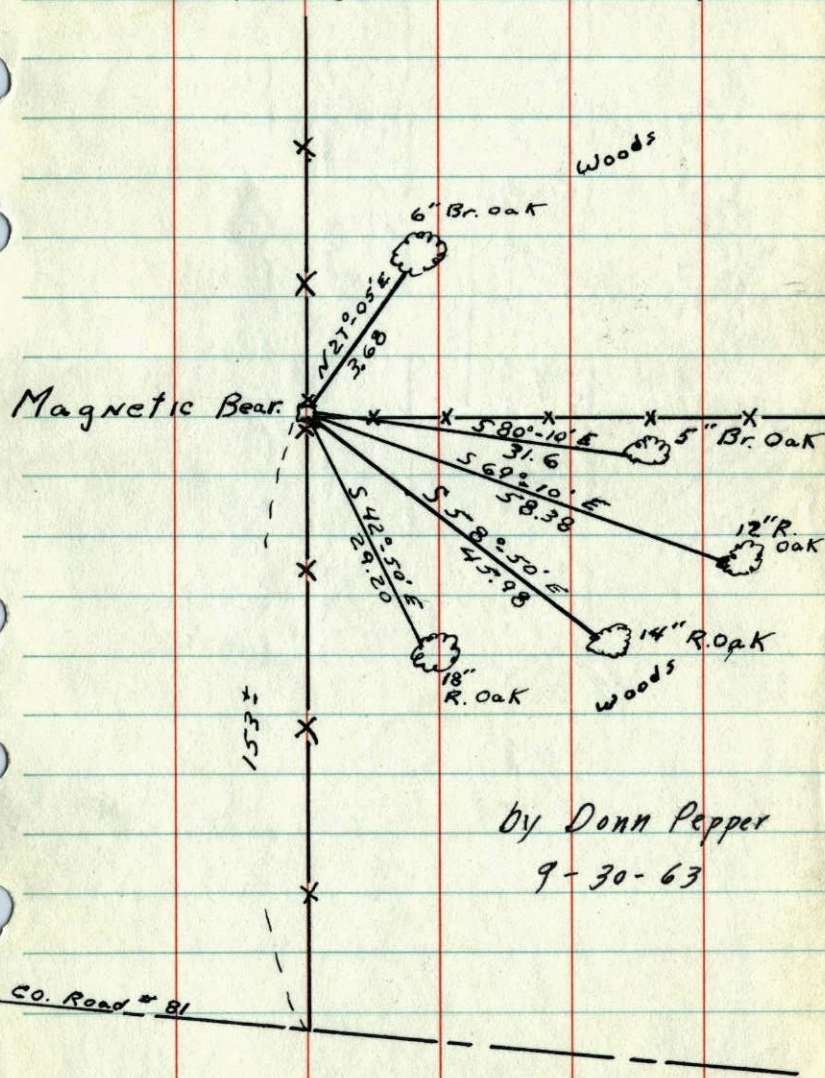 Woods
6" Br. Oak
N 27°-05' E
3.68
Magnetic Bear.
S 80°-10' E
31.6
5" Br. Oak
S 69°-10' E
58.38
12" R.
Oak
S 58°-50' E
45.98
14" R. Oak
S 42°-50' E
29.20
18"
R. Oak
Woods
153±
by Donn Pepper
9-30-63
Co. Road # 81